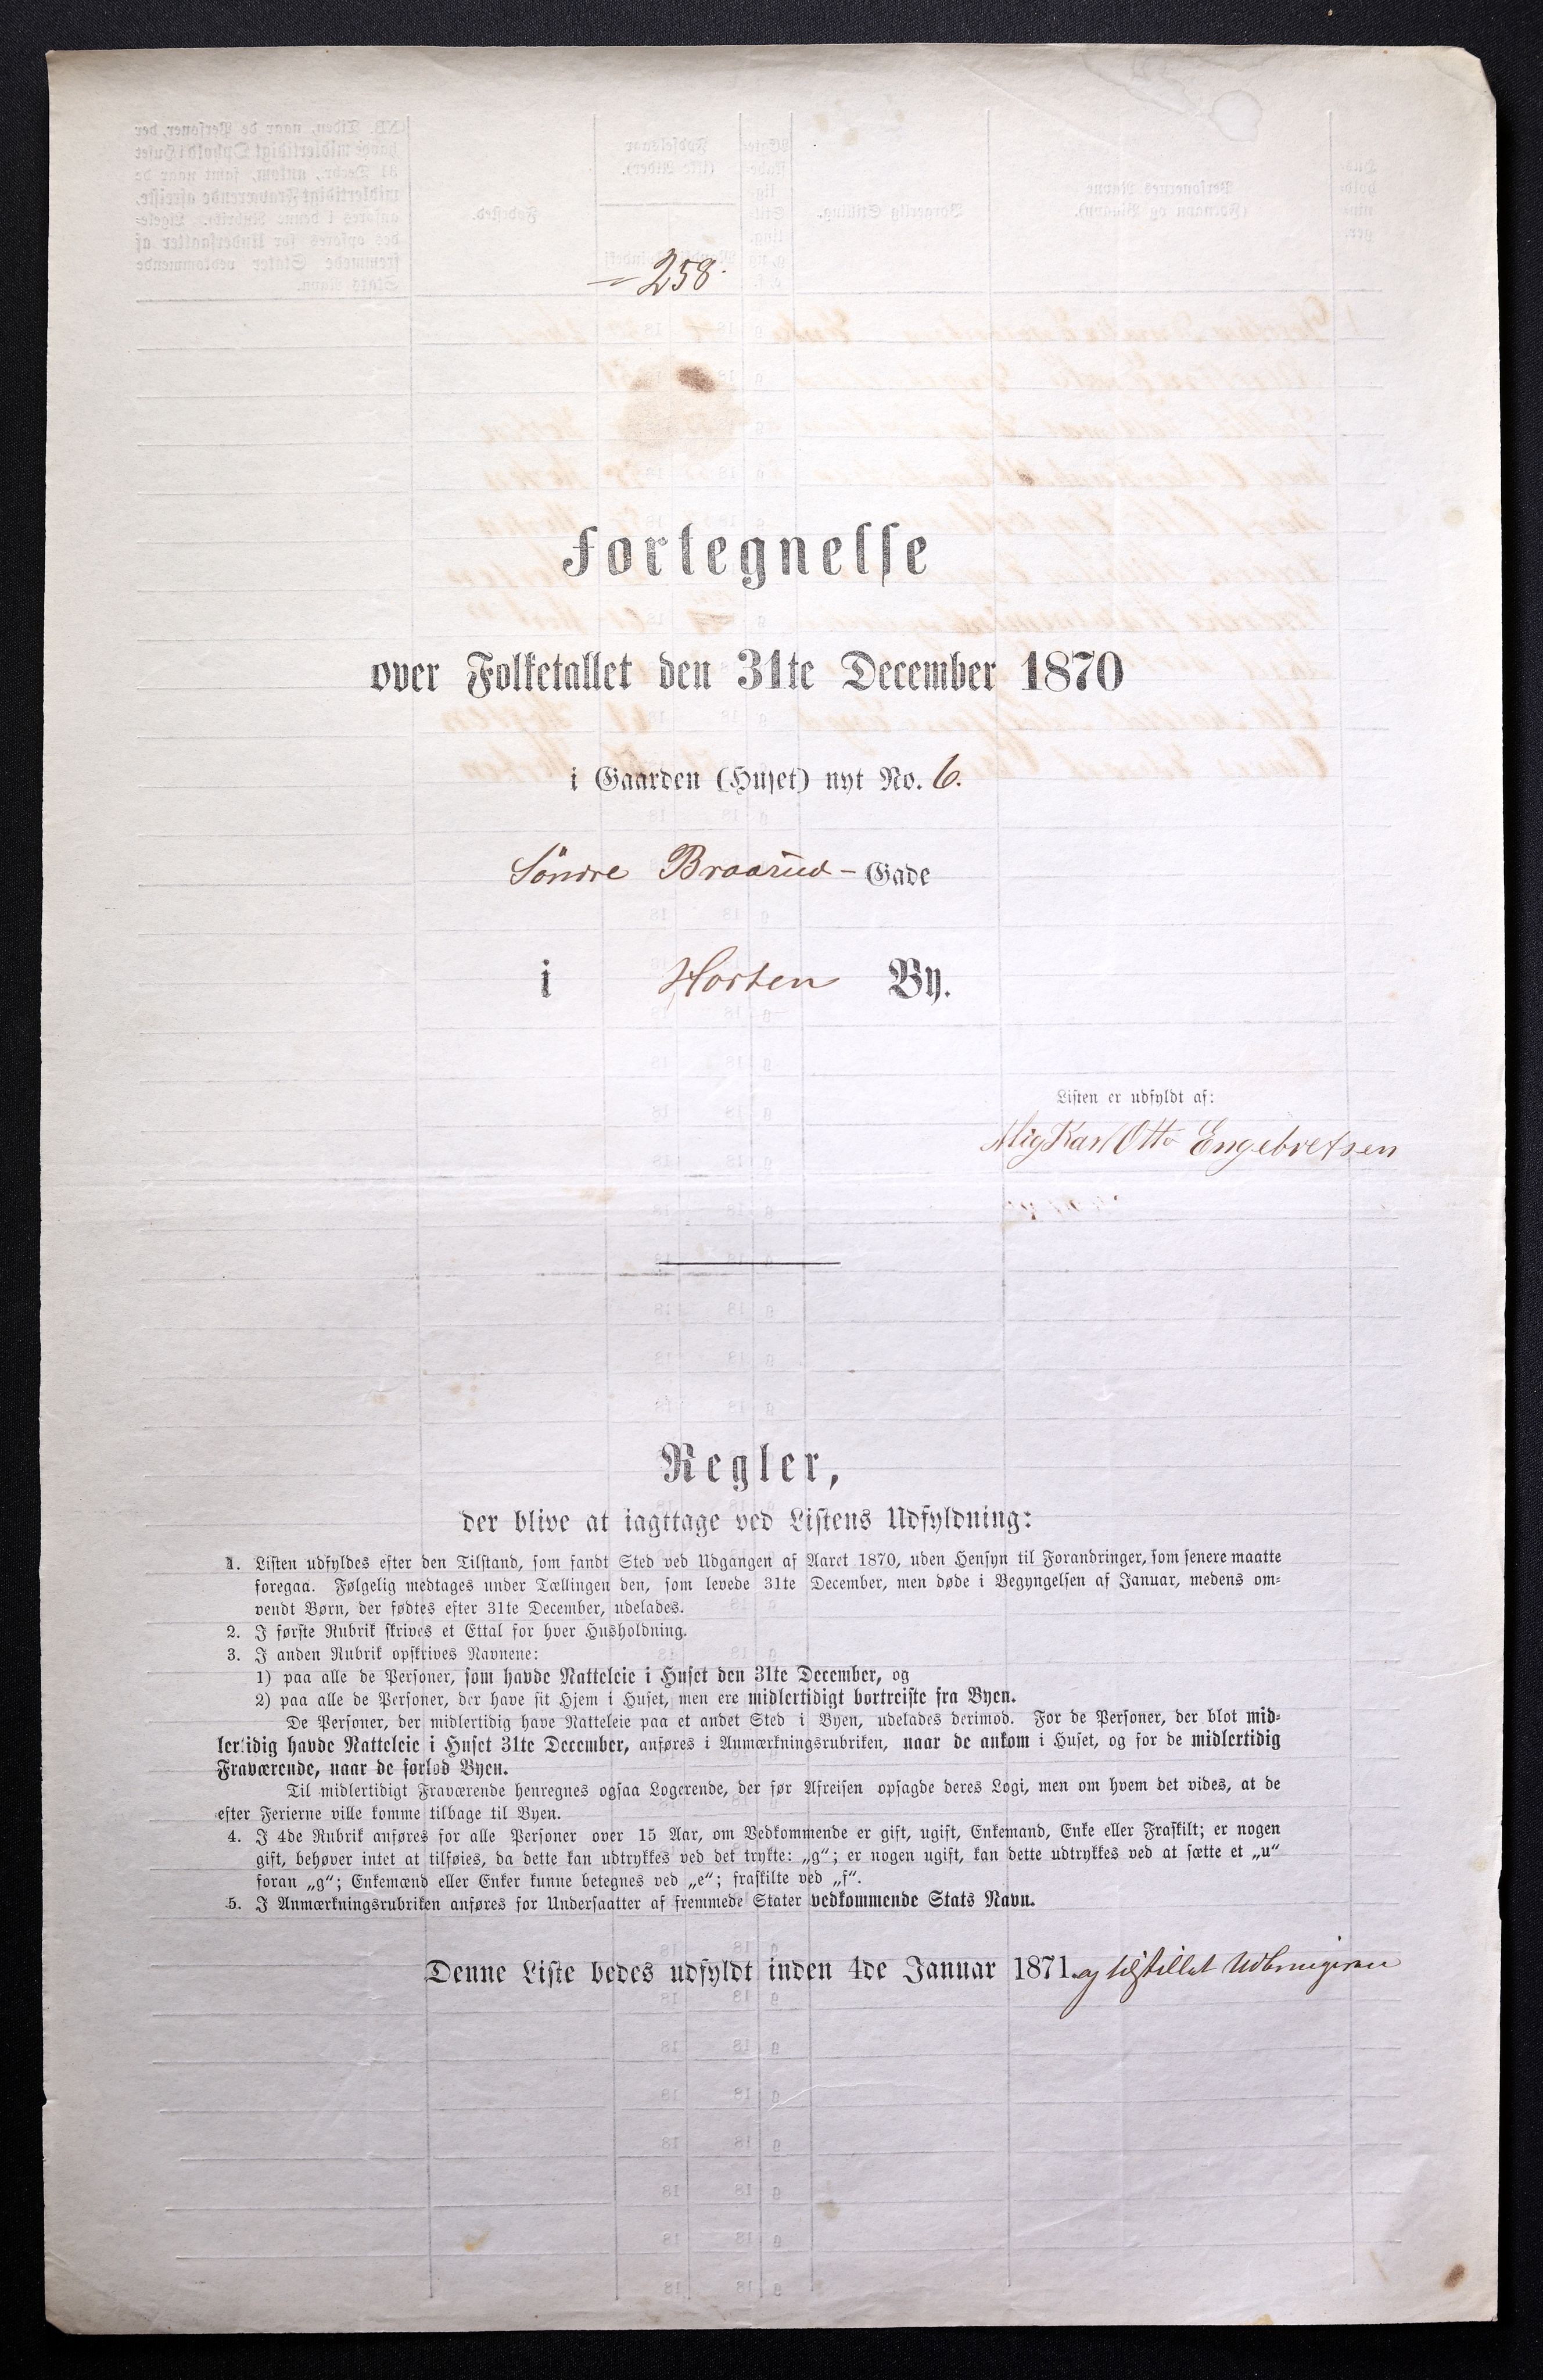 258.
Fortegnelse
over Folketallet den 31te December 1870
i Gaarden (Huset) nyt No. 6.
Söndre Braarud - Gade
i Horten By.
Listen er udfyldt af:
Mig Karl Otto Engebretsen
Regler,
der blive at iagttage ved Listens Udfyldning:
1. Listen udfyldes efter den Tilstand, som fandt Sted ved Udgangen af Aaret 1870, uden Hensyn til Forandringer, som senere maatte
foregaa. Følgelig medtages under Tællingen den, som levede 31te December, men døde i Begyngelsen af Januar, medens om-
vendt Børn, der fødtes efter 31te December, udelades.
2. I første Rubrik skrives et Ettal for hver Husholdning.
3. I anden Rubrik opskrives Navnene:
1) paa alle de Personer, som havde Natteleie i Huset den 31te December, og
2) paa alle de Personer, der have sit Hjem i Huset, men ere midlertidigt bortreiste fra Byen.
De Personer, der midlertidig have Natteleie paa et andet Sted i Byen, udelades derimod. For de Personer, der blot mid-
lertidig havde Natteleie i Huset 31te December, anføres i Anmærkningsrubriken, naar de ankom i Huset, og for de midlertidig
Fraværende, naar de forlod Byen.
Til midlertidigt Fraværende henregnes ogsaa Logerende, der før Afreisen opsagde deres Logi, men om hvem det vides, at de
efter Ferierne ville komme tilbage til Byen.
4. I 4de Rubrik anføres for alle Personer over 15 Aar, om Vedkommende er gift, ugift, Enkemand, Enke eller Fraskilt; er nogen
gift, behøver intet at tilføies, da dette kan udtrykkes ved det trykte: „g“; er nogen ugift, kan dette udtrykkes ved at sætte et „u“
foran „g“; Enkemænd eller Enker kunne betegnes ved „e“; fraskilte ved „f“.
5. I Anmærkningsrubriken anføres for Undersaatter af fremmede Stater vedkommende Stats Navn.
Denne Liste bedes udfyldt inden 4de Januar 1871. og tilstillet